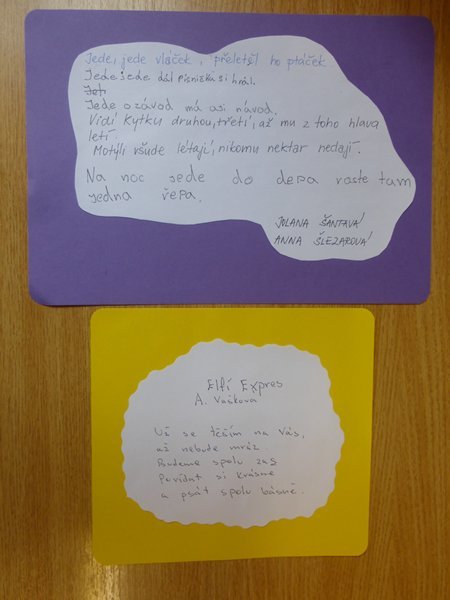 Jede, jede vláček, přeletěl ho ptáček.
Jede jede dál písničku si hrál.
Jede o závod má asi návod.
Vidí kytku druhou, třetí, až mu z toho hlava
letí.
Motýli všude létají, nikomu nektar nedají.
Na noc jede do depa roste tam
jedna řepa.
JOLANA ŠANTAVÁ
ANNA ŠLEZAROVÁ
Elfí Expres
A. Vaškova
Už se těším na Vás,
až nebude mráz.
Budeme spolu zas
Povídat si krásně
a psát spolu básně.